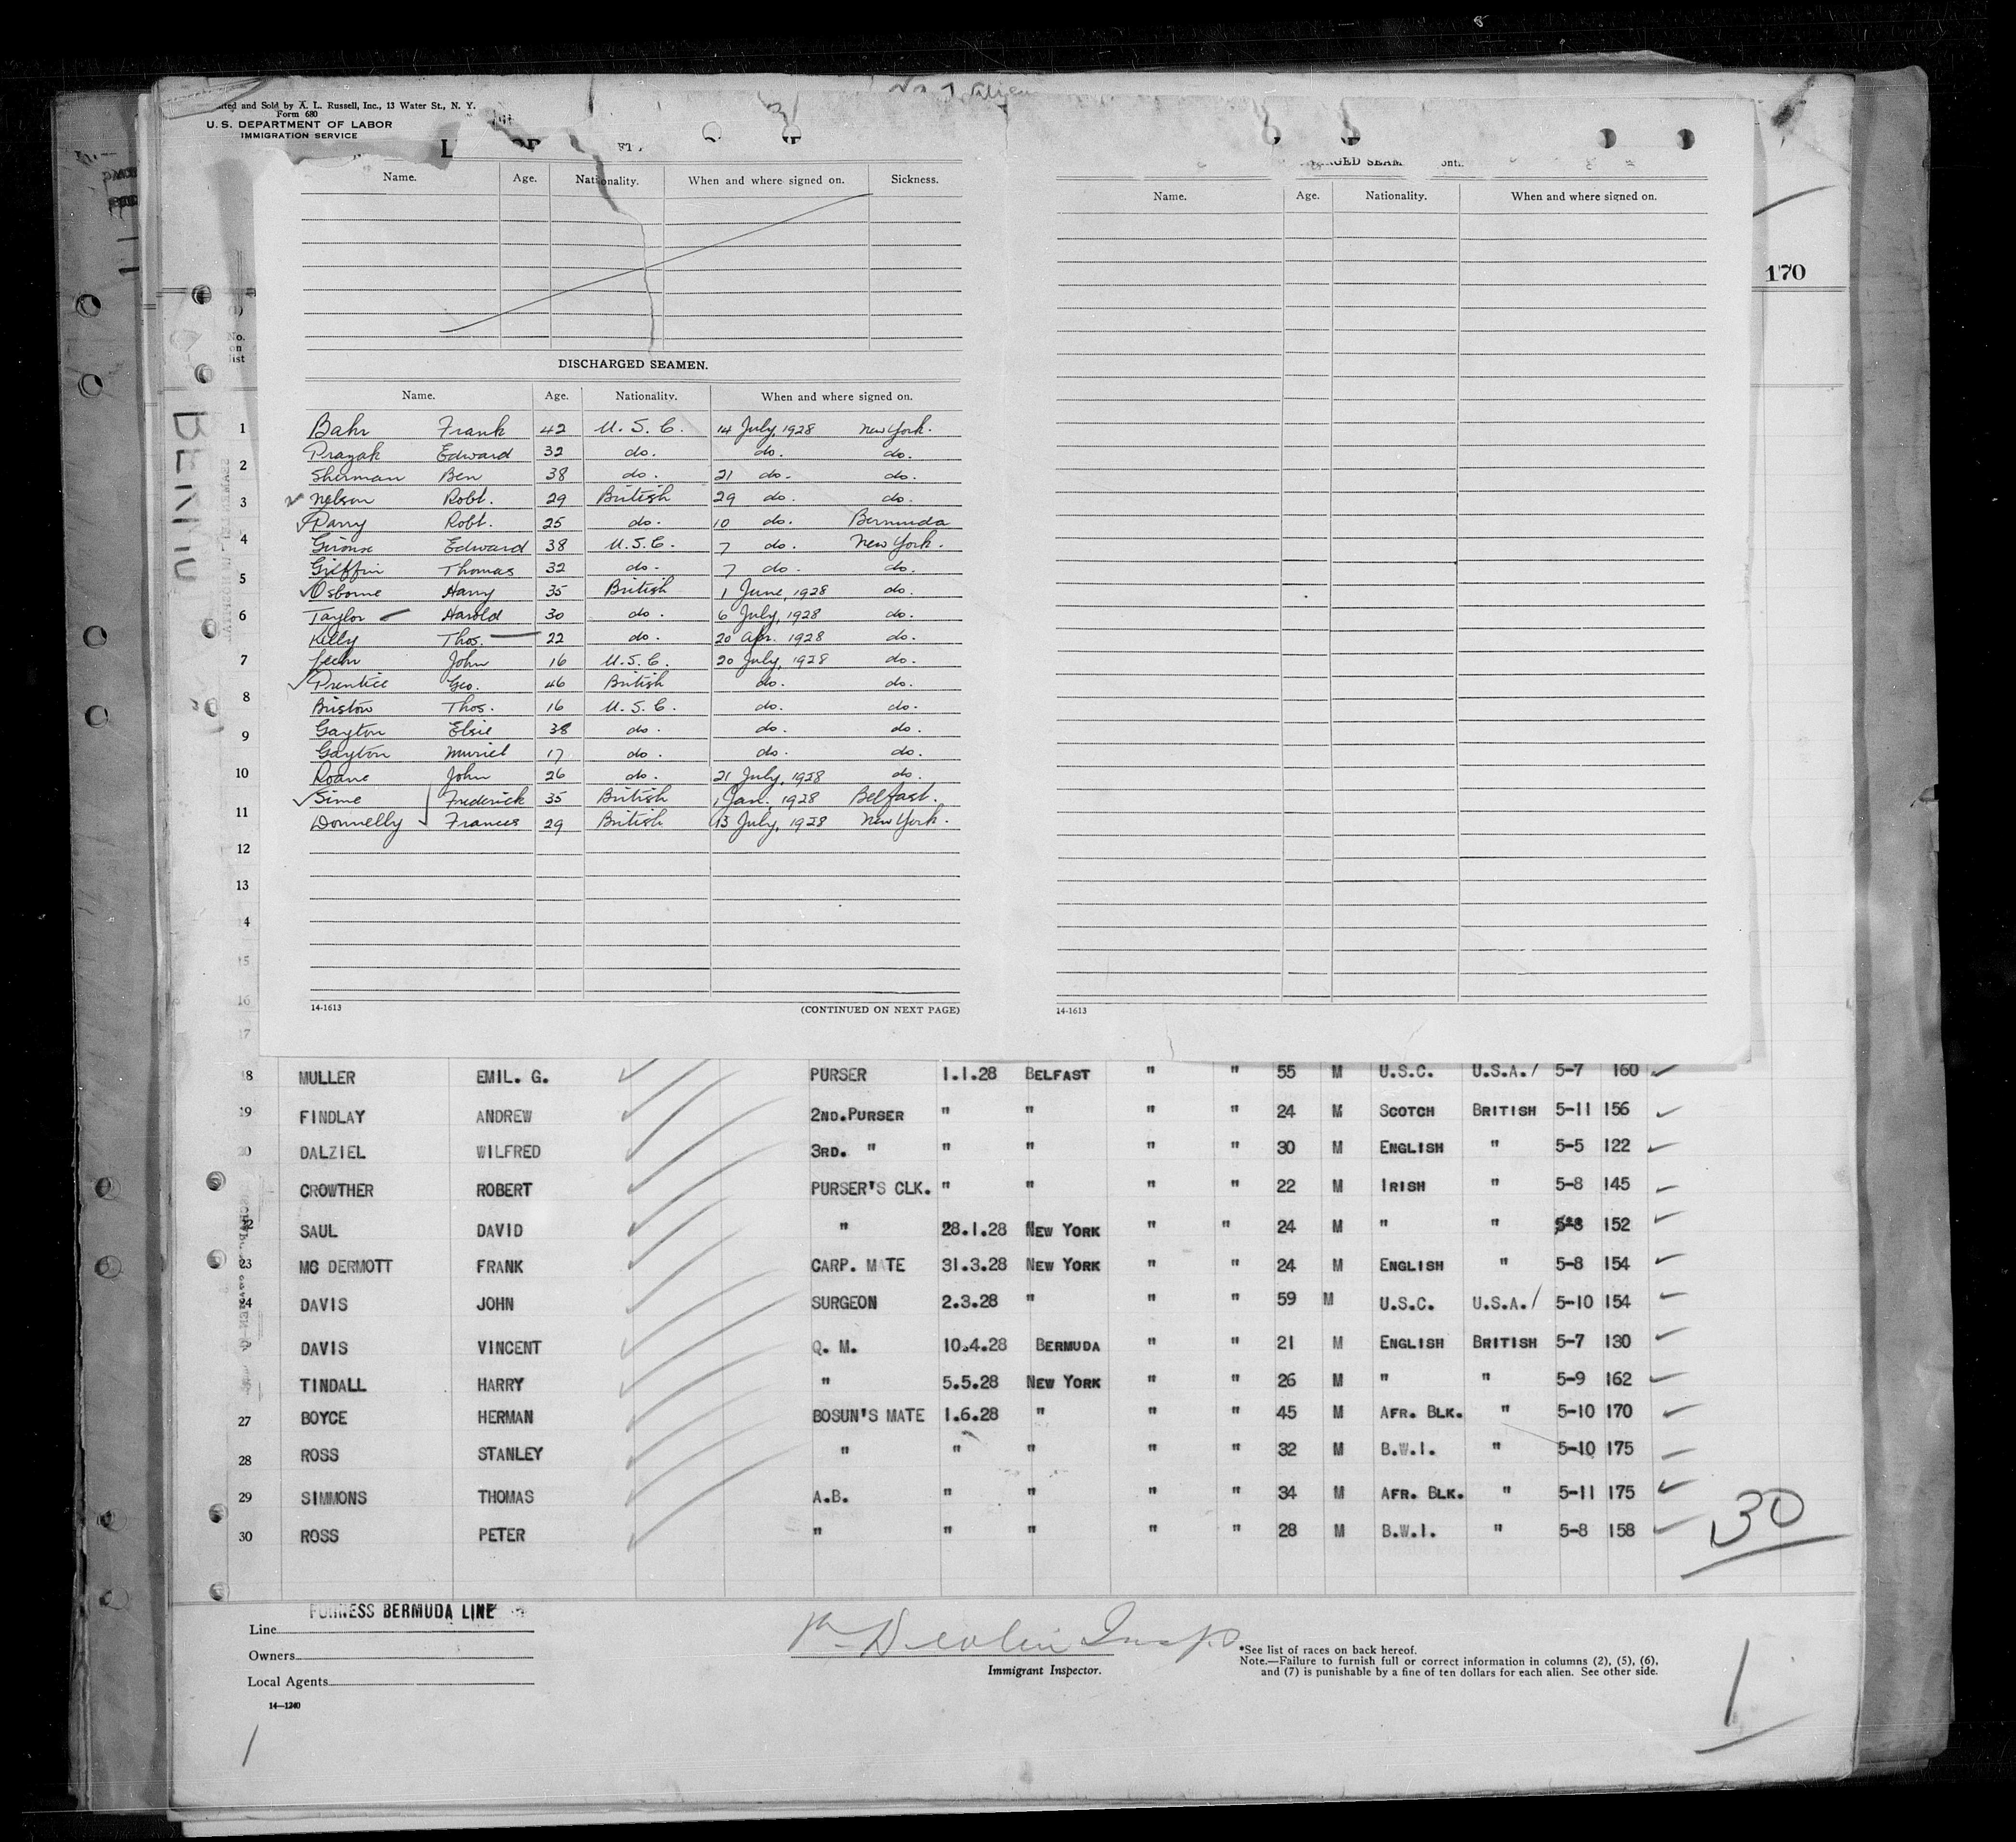 Printed and Sold by A. L. Russell, Inc., 13 Water St., N. Y.
Form 680
U. S. DEPARTMENT OF LABOR
IMMIGRATION SERVICE
170
Name. Age. Nationality. When and where signed on. Sickness.
Name. Age. Nationality. When and where signed on.
No. on list
DISCHARGED SEAMEN.
Name. Age. Nationality. When and where signed on.
Bahr Frank 42 U.S.C. 14 July, 1928 New York.
Prazak Edward 32 do. do. do.
Sherman Ben 38 do. 21 do. do.
Nelson Robt. 29 British 29 do. do.
Parry Robt. 25 do. 10 do. Bermuda
Edward 38 U.S.C. 7 do. New York.
Griffin Thomas 32 do. 7 do. do.
Osborne Harry 35 British 1 June, 1928 do.
Taylor Harold 30 do. 6 July, 1928 do.
Kelly Thos. 22 do. 20 Apr. 1928 do.
John 16 U.S.C. 20 July, 1928 do.
Prentice Geo. 46 British do. do.
Bristow Thos. 16 U.S.C. do. do.
Gayton Elsie 38 do. do. do.
Gayton Muriel 17 do. do. do.
Roane John 26 do. 21 July, 1928 do.
Sime Frederick 35 British 1 Jan. 1928 Belfast.
Donnelly Frances 29 British 13 July, 1928 New York.
14-1613 (CONTINUED ON NEXT PAGE)
14-1613
18 MULLER EMIL. G. PURSER 1.1.28 BELFAST " " 55 M U.S.C. U.S.A./ 5-7 160
19 FINDLAY ANDREW 2ND.PURSER " " " " 24 M SCOTCH BRITISH 5-11 156
20 DALZIEL WILFRED 3RD. " " " " " 30 M ENGLISH " 5-5 122
CROWTHER ROBERT PURSER'S CLK. " " " " 22 M IRISH " 5-8 145
22 SAUL DAVID " 28.1.28 NEW YORK " " 24 M " " 5-8 152
23 MC DERMOTT FRANK CARP. MATE 31.3.28 NEW YORK " " 24 M ENGLISH " 5-8 154
24 DAVIS JOHN SURGEON 2.3.28 " " " 59 M U.S.C. U.S.A./ 5-10 154
DAVIS VINCENT Q. M. 10.4.28 BERMUDA " " 21 M ENGLISH BRITISH 5-7 130
TINDALL HARRY " 5.5.28 NEW YORK " " 26 M " " 5-9 162
27 BOYCE HERMAN BOSUN'S MATE 1.6.28 " " " 45 M AFR. BLK. " 5-10 170
28 ROSS STANLEY " " " " " 32 M B.W.I. " 5-10 175
29 SIMMONS THOMAS A.B. " " " " 34 M AFR. BLK. " 5-11 175
30 ROSS PETER " " " " " 28 M B.W.I. " 5-8 158
30
FURNESS BERMUDA LINE
Line
Owners
Local Agents
14—1240
Insp
Immigrant Inspector.
*See list of races on back hereof.
Note.—Failure to furnish full or correct information in columns (2), (5), (6),
and (7) is punishable by a fine of ten dollars for each alien. See other side.
1